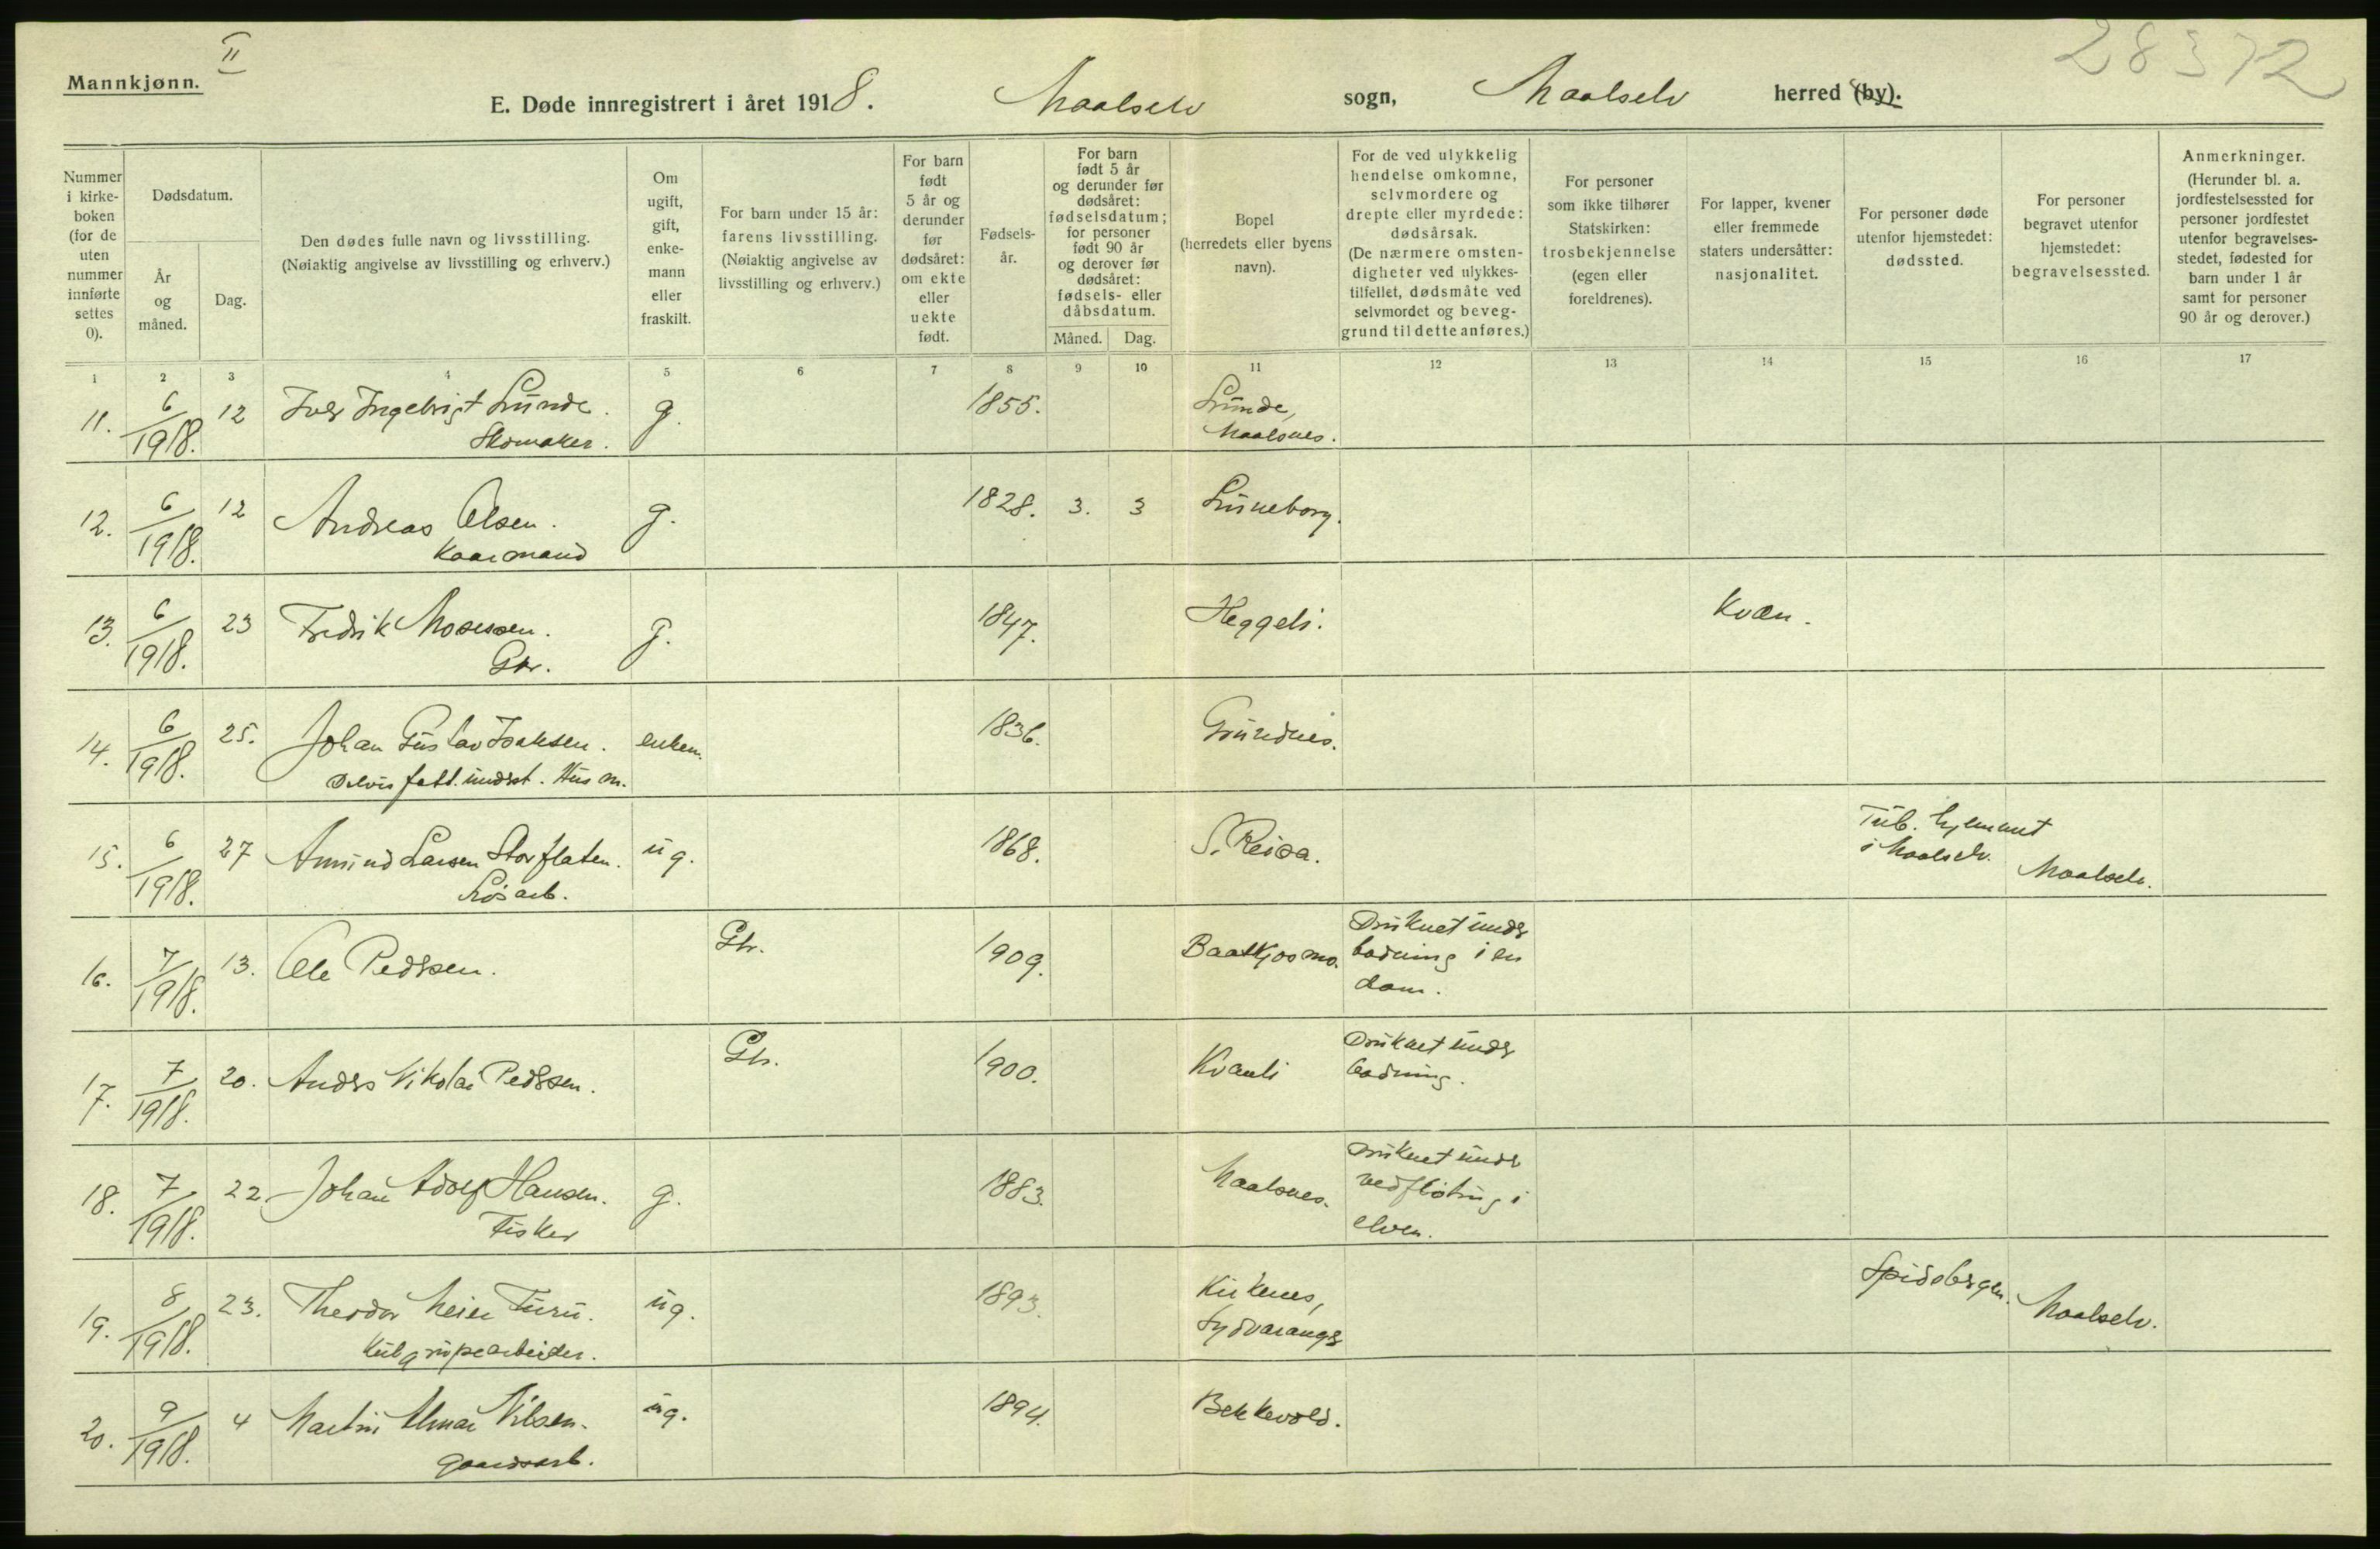 28372
II
Mannkjønn.
E. Døde innregistrert i året 1918. Maalselv sogn, Maalselv herred (by).
Nummer i kirke- boken (for de uten nummer innførte settes 0).
Dødsdatum.
År og måned.
Dag.
Den dødes fulle navn og livsstilling.
(Nøiaktig angivelse av livsstilling og erhverv.)
Om ugift, gift, enke- mann eller fraskilt.
For barn under 15 år:
farens livsstilling.
(Nøiaktig angivelse av
livsstilling og erhverv.)
For barn født 5 år og derunder før dødsåret: om ekte eller uekte født.
Fødsels- år.
For barn født 5 år og derunder før dødsåret: fødselsdatum; for personer født 90 år og derover før dødsåret: fødsels- eller dåbsdatum.
Måned. Dag.
Bopel
(herredets eller byens
navn).
For de ved ulykkelig
hendelse omkomne,
selvmordere og
drepte eller myrdede:
dødsårsak.
(De nærmere omsten-
digheter ved ulykkes-
tilfellet, dødsmåte ved
selvmordet og beveg-
grund til dette anføres.)
For personer
som ikke tilhører
Statskirken:
trosbekjennelse
(egen eller
foreldrenes).
For lapper, kvener
eller fremmede
staters undersåtter:
nasjonalitet.
For personer døde
utenfor hjemstedet:
dødssted.
For personer
begravet utenfor
hjemstedet:
begravelsessted.
Anmerkninger.
(Herunder bl. a.
jordfestelsessted for
personer jordfestet
utenfor begravelses-
stedet, fødested for
barn under 1 år
samt for personer
90 år og derover.)
1 2 3 4 5 6 7 8 9 10 11 12 13 14 15 16 17
11. 6/1918. 12 Iver Ingebrigt Lunde. g. 1855. Lunde,
Skomaker. Maalsnes.
12. 6/1918. 12 Andreas Olsen. g. 1828. 3. 3 Luneborg.
Kaarmand
13. 6/1918. 23 Fredrik Mosessen. g. 1847. Heggeli. Kvæn.
Gbr.
14. 6/1918. 25. Johan Gustav Isaksen. enkem. 1836. Grundnes.
Delvis fatt. underst. Husm.
15. 6/1918. 27 Amund Larsen Storflaten. ug. 1868. S. Reisa. Tub. hjemmet
Løsarb. i Maalselv. Maalselv.
16. 7/1918. 13. Ole Pedersen. Gbr. 1909. Druknet under
badning i en
dam.
17. 7/1918. 20. Anders Nikolai Pedersen. Gbr. 1900. Kvanli Druknet under
badning.
18. 7/1918. 22. Johan Adolf Hansen. g. 1883. Maalsnes. Druknet under
Fisker vedfløting i
elven.
19. 8/1918. 23. Theodor Meier Turu. ug. 1893. Kirkenes, Spidsbergen. Maalselv.
Kulgrupearbeider. Sydvaranger
20. 9/1918. 4 Martin Nilsen. ug. 1894. Bekkevold.
Gaardsarb.